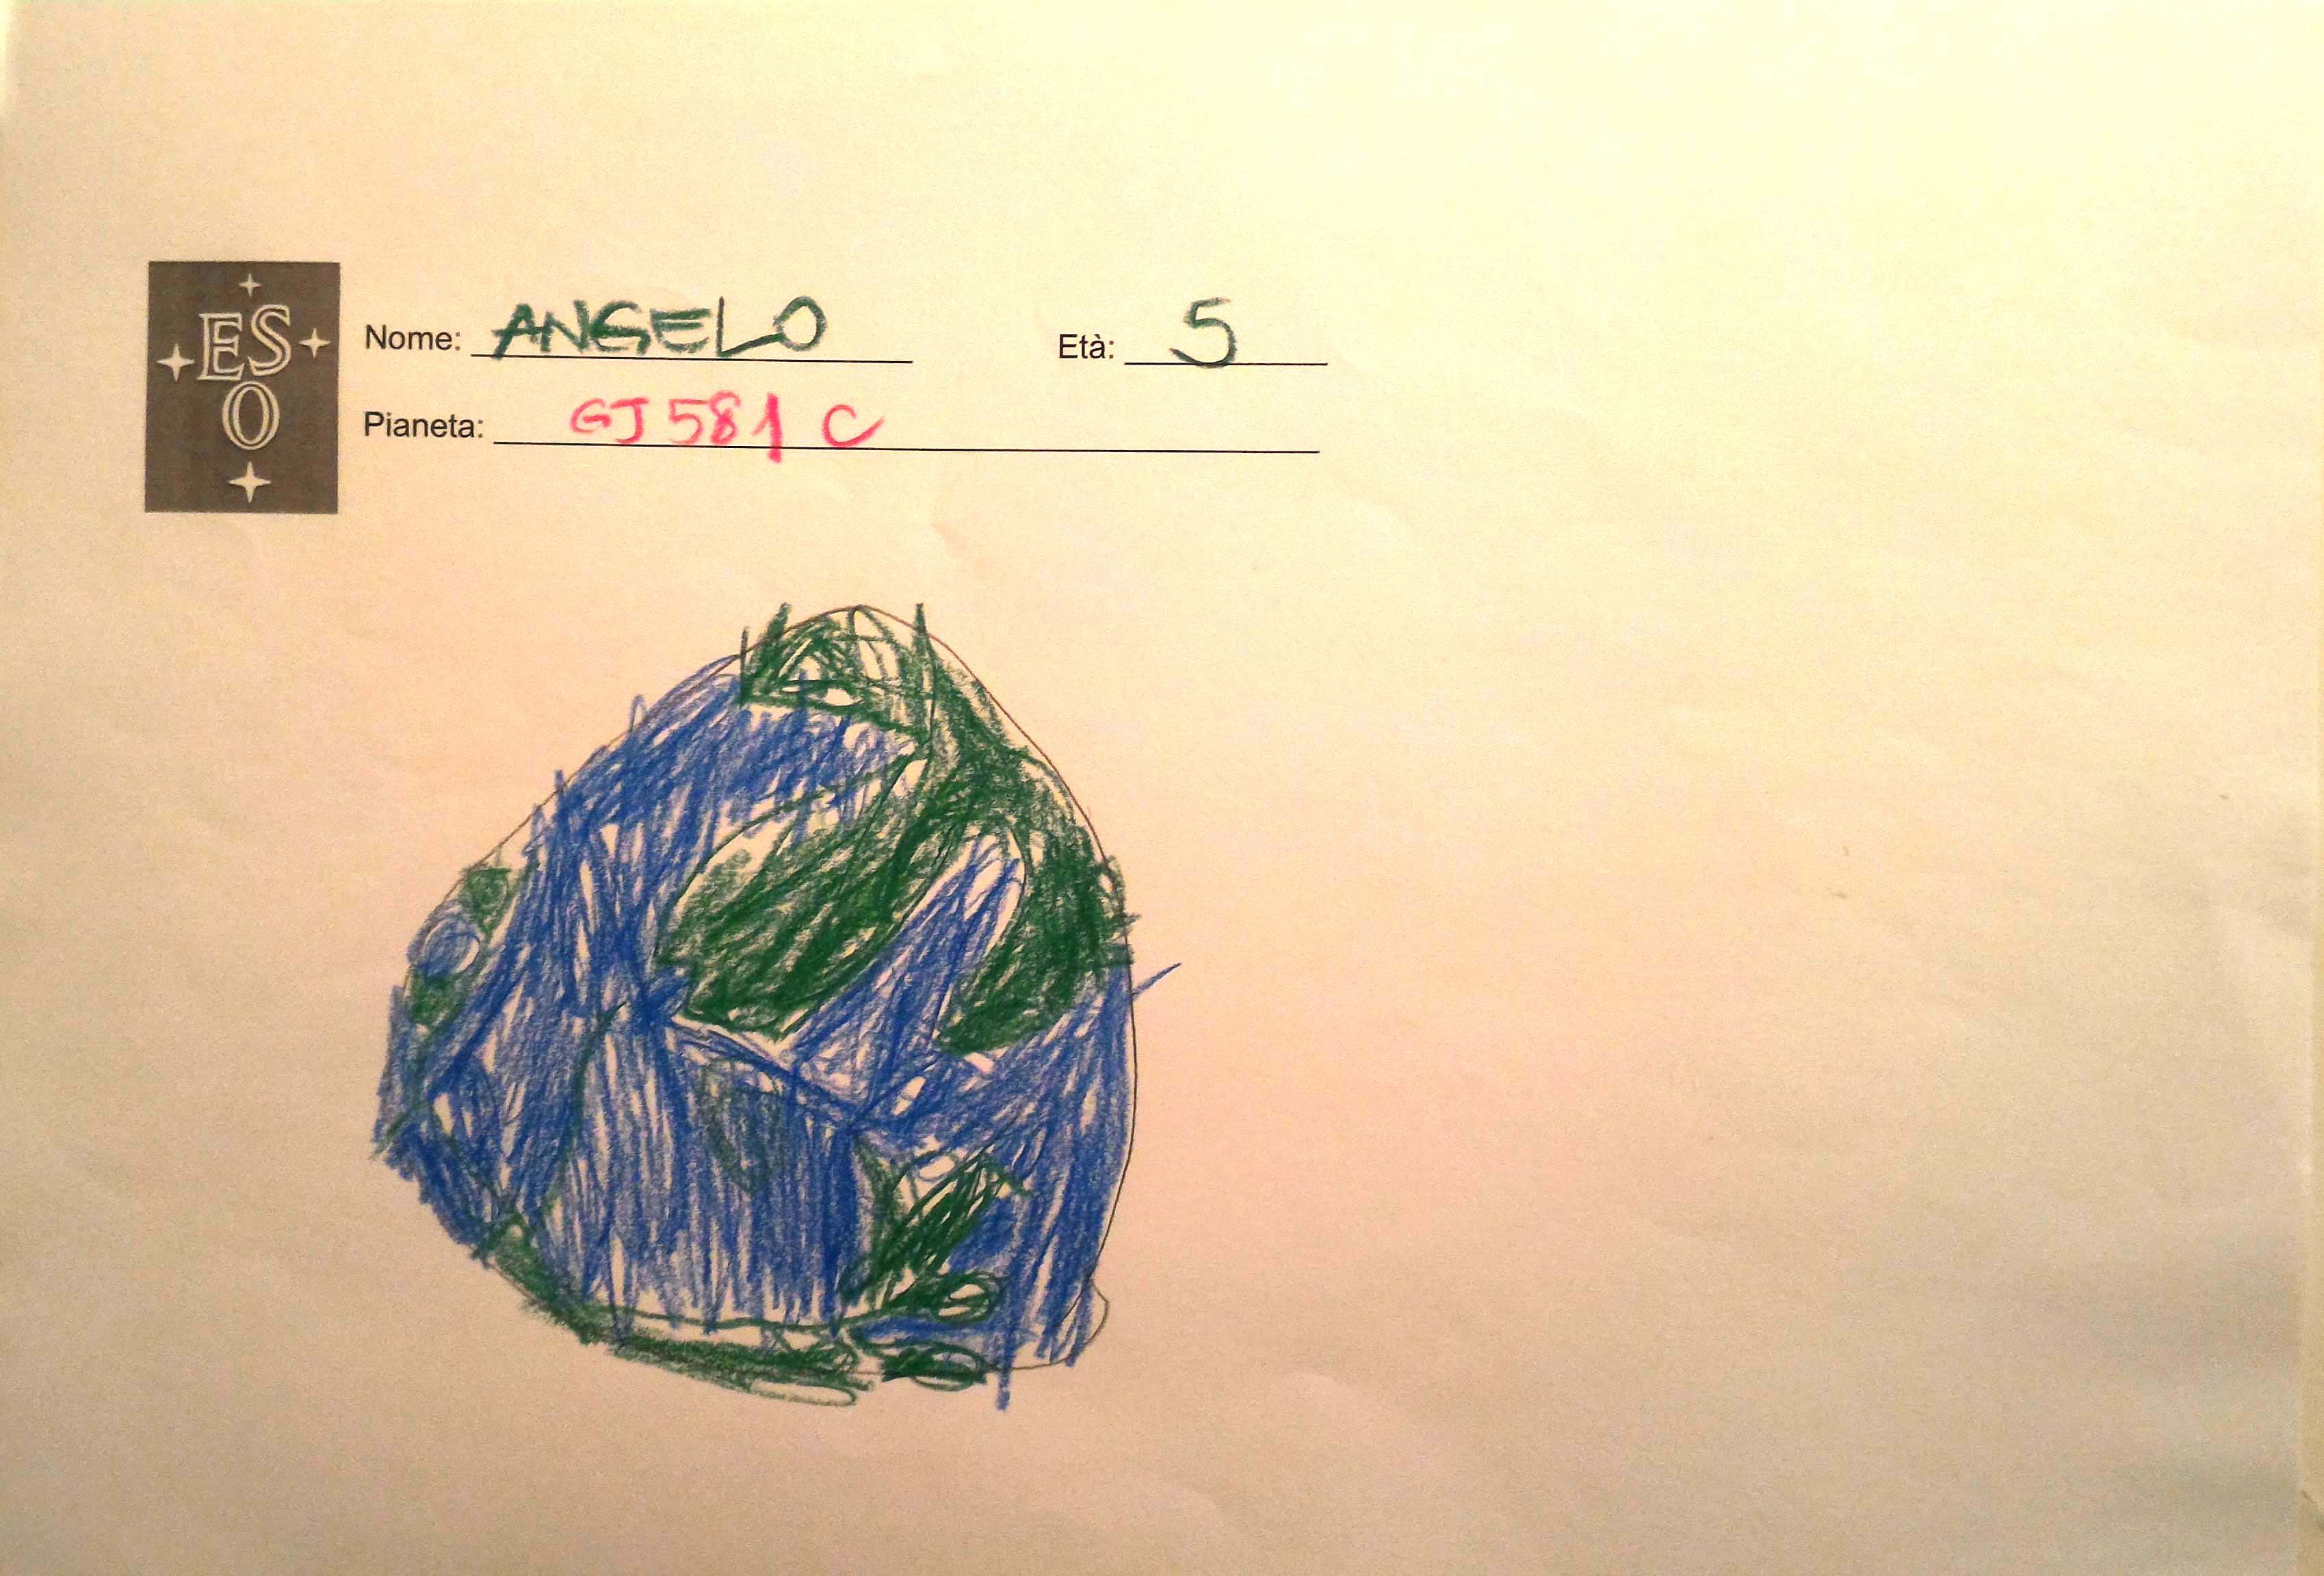 ES
O
Nome: ANGELO Età: 5
Pianeta: GJ581 C